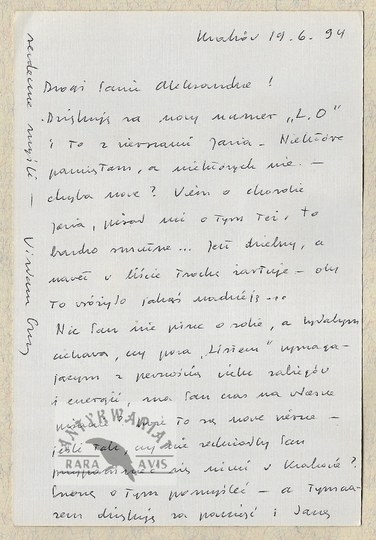 Kraków 19.6.94
Drogi Panie Aleksandrze!
Dziękuję za nowy numer „L.O”
i to z wierszami Jana. Niektóre
pamiętam, a niektórych nie. —
chyba nowe? Wiem o chorobie
Jana, pisał mi o tym też, to
bardzo smutne... Jest dzielny, a
nawet w liście trochę żartuje — oby
to wróżyło jakąś nadzieję...
Nic Pan nie pisze o sobie, a byłabym
ciekawa, czy poza „Listem” wymaga-
jącym z pewnością wielu zabiegów
i energii, ma Pan czas na własne
to są nowe wiersze —
jeśli tak, czy nie zechciałby Pan
się nimi w Krakowie?
Proszę o tym pomyśleć — a tymcza-
sem dziękuję za pamięć i Jana
serdeczne myśli —
ANTYKWARIAT
RARA AVIS